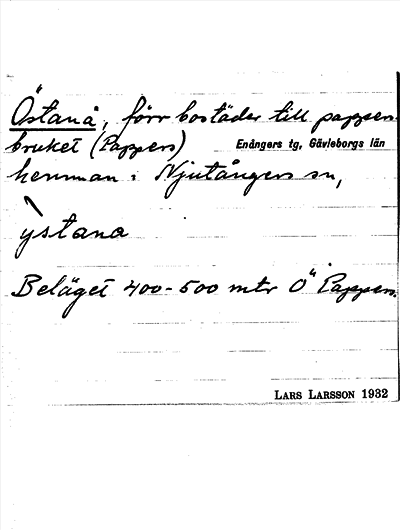 Östanå, förr bostäder till pappers-
bruket (Pappers)
Enångers tg, Gävleborgs län
hemman i Njutångers sn,
ỳstana
Beläget 400-500 mtr Ö Pappers.
LARS LARSSON 1932